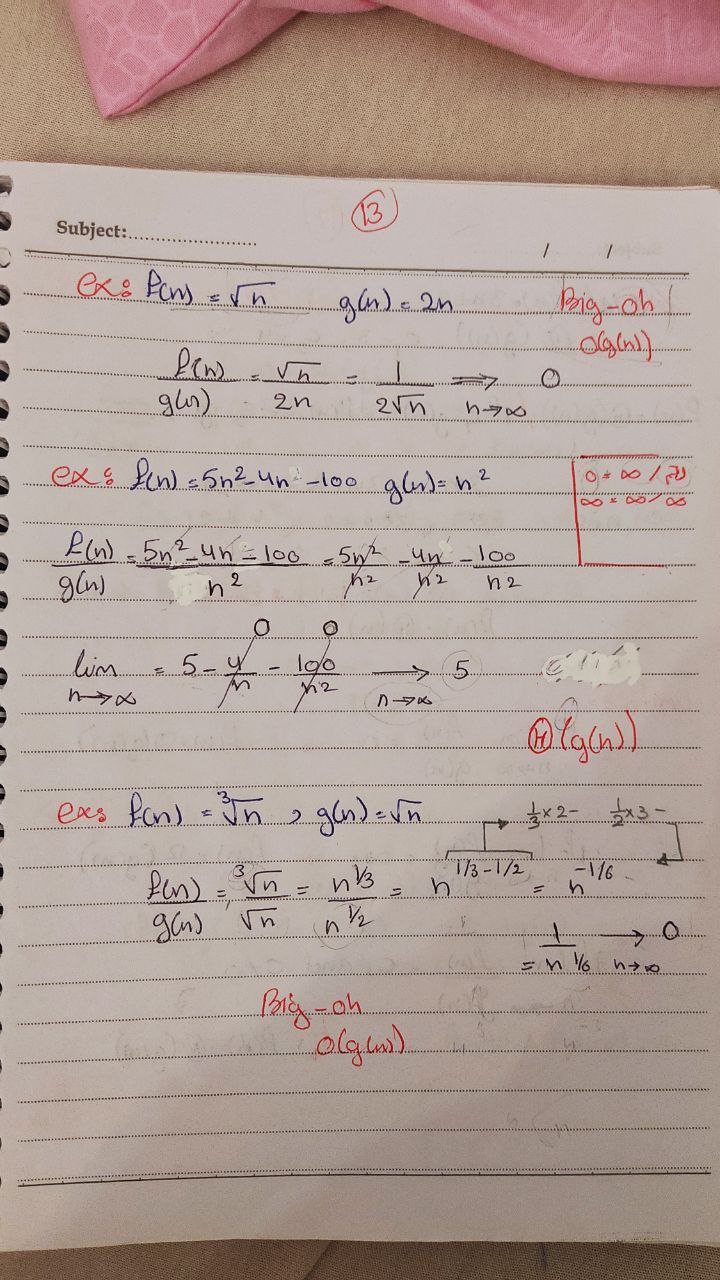 13
Subject:........................
/ /
ex: f(n) = √n g(n) = 2n Big-oh
O(g(n))
f(n)/g(n) = √n/2n = 1/2√n ⟹ n→∞ 0
ex: f(n) = 5n² - 4n - 100 g(n) = n²
∞ = ∞ / ∞
f(n)/g(n) = 5n² - 4n - 100 / n² = 5n²/n² - 4n/n² - 100/n²
0 0
lim n→∞ = 5 - 4/n - 100/n² → n→∞ 5
Ⓗ(g(n))
ex: f(n) = ³√n , g(n) = √n
1/3 x 2 - 1/2 x 3 -
f(n)/g(n) = ³√n/√n = n^1/3 / n^1/2 = n^1/3-1/2 = n^-1/6
= 1/n^1/6 → n→∞ 0
Big-oh
O(g(n))